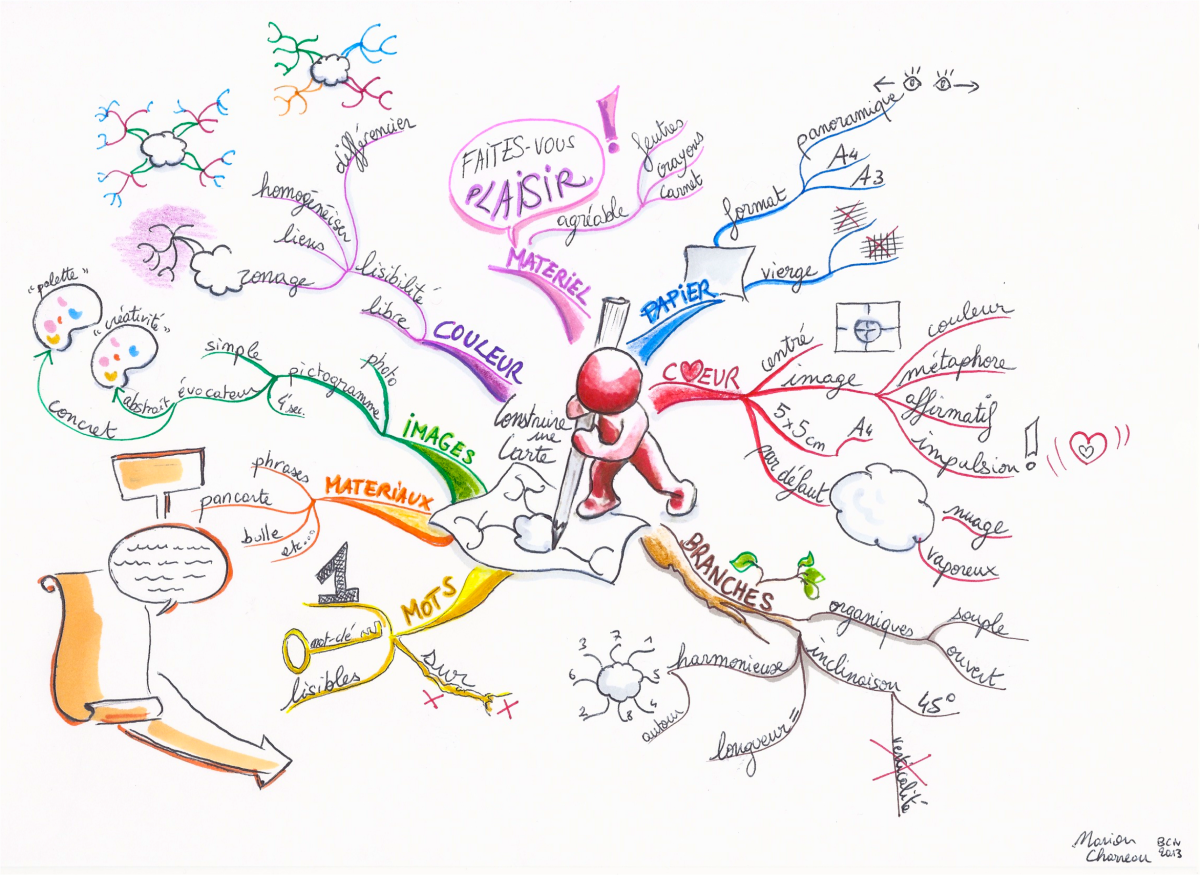 Construire
une
Carte
FAITES-VOUS
PLAISIR
!
MATERIEL
agréable
feutres
crayons
carnet
PAPIER
format
panoramique
A4
A3
vierge
CŒUR
centré
image
couleur
métaphore
affirmatif
impulsion
!
5x5cm
A4
par défaut
nuage
vaporeux
BRANCHES
organiques
souple
ouvert
inclinaison
45°
verticalité
longueur =
harmonieuse
autour
1
2
3
4
5
6
7
8
MOTS
1
mot-clé
lisibles
sur
MATERIAUX
phrases
pancarte
bulle
etc...
IMAGES
photo
pictogramme
simple
4 sec.
évocateur
abstrait
"créativité"
concret
"palette"
COULEUR
libre
lisibilité
différencier
homogénéiser
liens
zonage
Marion
Charreau
BCN
2013